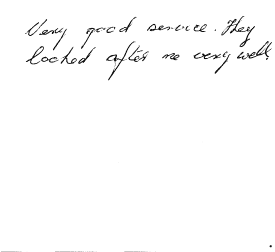 Very good service. They
looked after me very well.